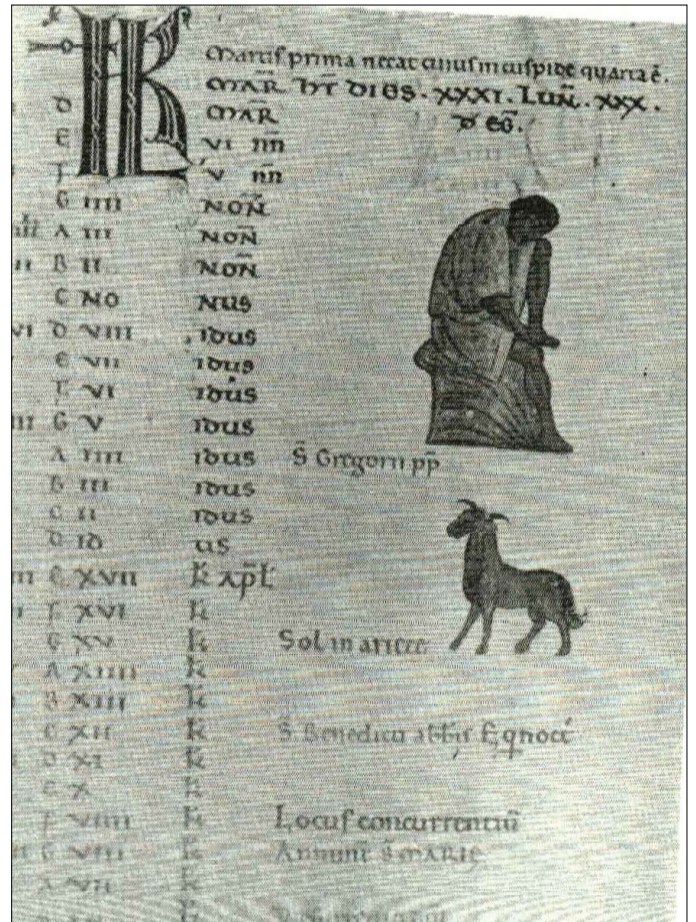 KL
Martis prima necat cuius in cuspide quarta ē.
MAR̄ HT̄ DIES . XXXI . LUN̄ . XXX .
D MAR̄
E VI nn̄
F V nn̄
G IIII NON̄
A III NON̄
B II NON̄
C NO NUS
VI D VIII IDUS
E VII IDUS
F VI IDUS
G V IDUS
A IIII IDUS S̄ Gregorii pp̄
B III IDUS
C II IDUS
D ID US
E XVII K APL̄
F XVI K
G XV K Sol in ariete
A XIIII K
B XIII K
C XII K S. Benedicti abb̄is Eq̄nocc̄
D XI K
E X K
F VIIII K Locus concurrentiū
G VIII K Annunt̄ S̄ MARIE
A VII K